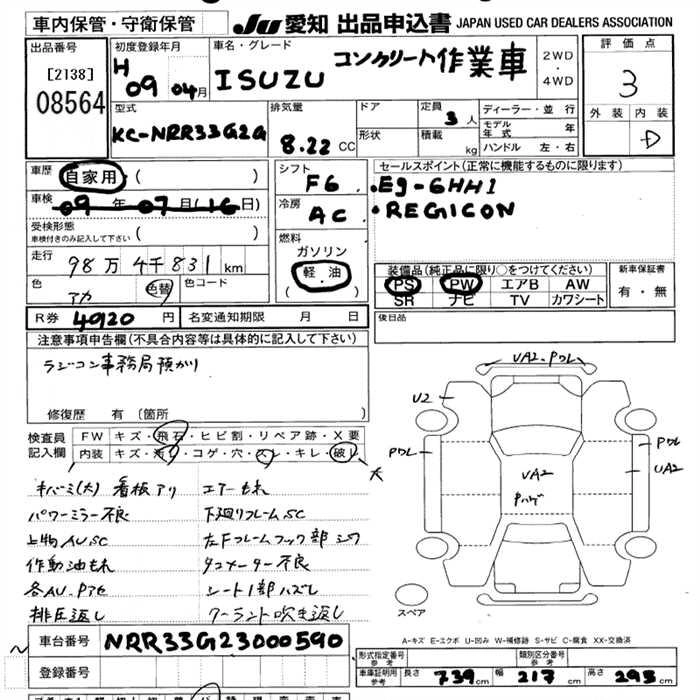 車内保管・守衛保管
JU 愛知 出品申込書 JAPAN USED CAR DEALERS ASSOCIATION
出品番号
[2138]
08564
初度登録年月
H 09 04月
車名・グレード
ISUZU コンクリート作業車
2WD・4WD
評価点
3
外装 内装
D
型式
KC-NRR33G2G
排気量
8.22 CC
ドア
形状
定員
3人
積載
kg
ディーラー・並行
モデル年式 年
ハンドル 左・右
車歴
自家用・( )
車検
09年07月(16日)
受検形態
車検付きのみ記入して下さい ( )
走行
98万4千831km
色
アカ
色替
色コード
シフト
F6
冷房
AC
燃料
ガソリン
軽・油
( )
セールスポイント(正常に機能するものに限ります)
・Eg-6HH1
・REGICON
装備品(純正品に限り○をつけてください)
PS PW エアB AW
SR ナビ TV カワシート
新車保証書
有・無
R券 40920円
名変通知期限 月 日
後日品
注意事項申告欄(不具合内容等は具体的に記入して下さい)
ラジコン事務局預かり
修復歴 有 〔箇所 〕
検査員記入欄
FW キズ・飛石・ヒビ割・リペア跡・X要
内装 キズ・汚れ・コゲ・穴・スレ・キレ・破レ
大
キバミ(大) 看板アリ エアーもれ
パワーミラー不良 下廻りフレームSC
上物AUSC 左Fフレームフック部
作動油もれ タコメーター不良
各AU、Pアセ シート1部ハズレ
排圧返し クーラント吹き返し
UA2、PDL
U2
PDL
UA2
Pハゲ
PDL
UA2
スペア
A-キズ E-エクボ U-凹み W-補修跡 S-サビ C-腐食 XX-交換済
車台番号 NRR33G23000590
登録番号
形式指定番号 参考
類別区分番号 参考
車庫証明用 参考 長さ 739cm 幅 217cm 高さ 293cm